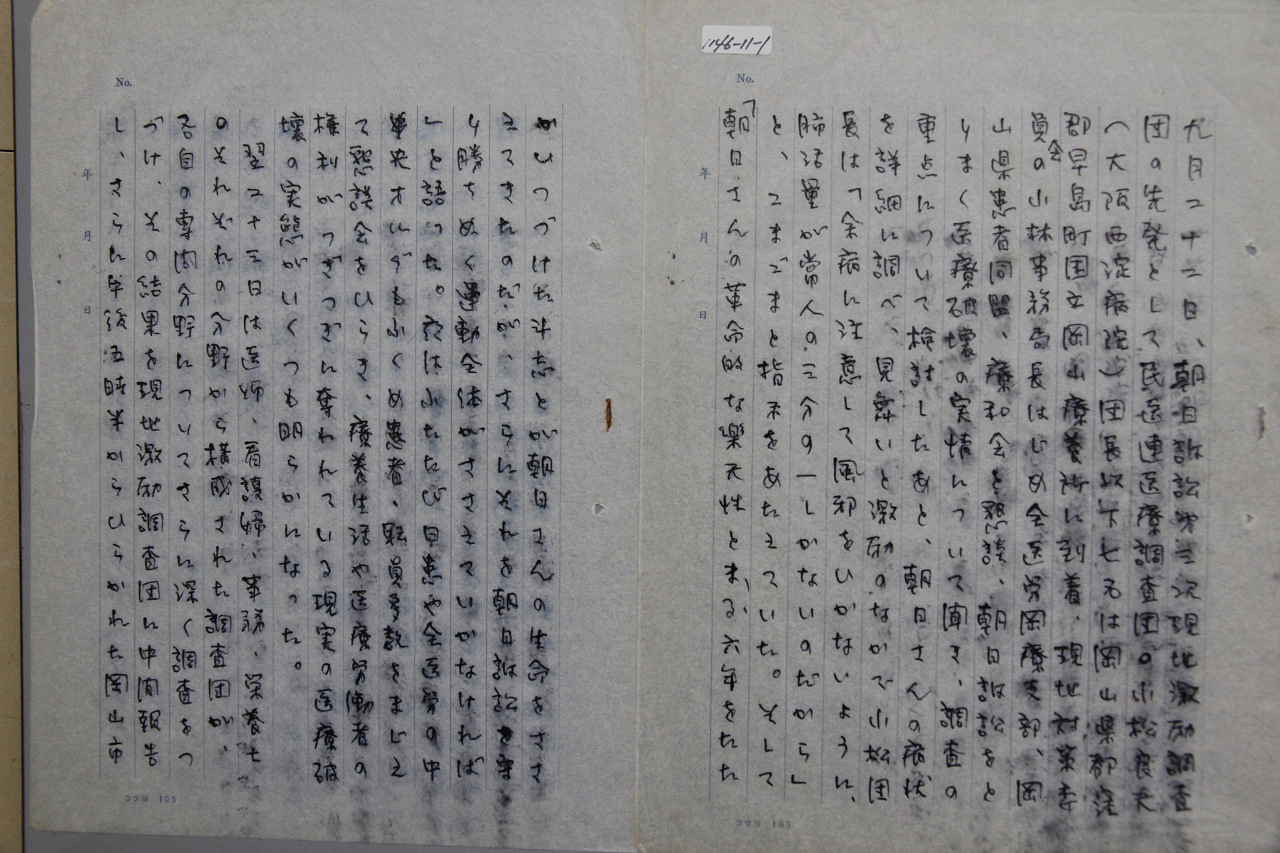 1146-11-1
No.
年 月 日
九月二十二日、朝日訴訟第三次現地激励調査
団の先発として民医連医療調査団の小松良夫
（大阪西淀病院）団長以下七名は岡山県都窪
郡早島町国立岡山療養所に到着、現地対策委
員会の小林事務局長はじめ全医労岡療支部、岡
山県患者同盟、療和会と懇談、朝日訴訟をと
りまく医療破壊の実情について聞き、調査の
重点について検討したあと、朝日さんの病状
を詳細に調べ、見舞いと激励のなかで小松団
長は「余病に注意して風邪をひかないように、
肺活量が常人の三分の一しかないのだから」
と、こまごまと指示をあたえていた。そして
「朝日さんの革命的な楽天性と、まる六年をたた
コクヨ 105
No.
年 月 日
かいつづけた斗志とが朝日さんの生命をささ
えてきたのだが、さらにそれを朝日訴訟を守
り勝ちぬく運動全体がささえていかなければ
」と語った。夜はふたたび日患や全医労の中
央オルグもふくめ患者、転員多数をまじえ
て懇談会をひらき、療養生活や医療労働者の
権利がつぎつぎに奪われている現実の医療破
壊の実態がいくつも明らかになった。
翌二十三日は医師、看護婦、事務、栄養士
のそれぞれの分野から構成された調査団が、
各自の専門分野についてさらに深く調査をつ
づけ、その結果を現地激励調査団に中間報告
し、さらに午後五時半からひらかれた岡山市
コクヨ 105